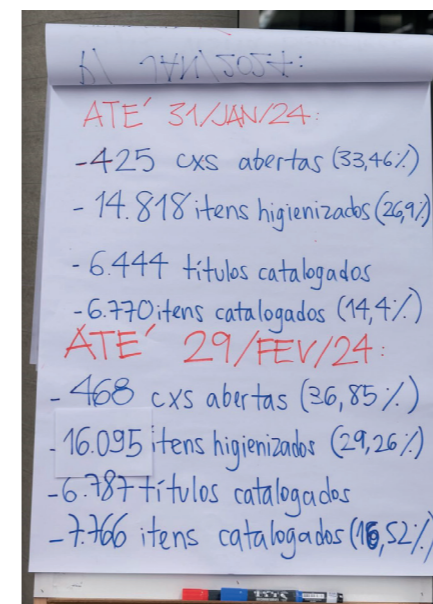 ATÉ 31/JAN/24:
-425 cxs abertas (33,46%)
- 14.818 itens higienizados (26,9%)
- 6.444 títulos catalogados
-6.770 itens catalogados (14,4%)
ATÉ 29/FEV/24:
- 468 cxs abertas (36,85%)
- 16.095 itens higienizados (29,26%)
-6.787 títulos catalogados
-7.766 itens catalogados (16,52%)